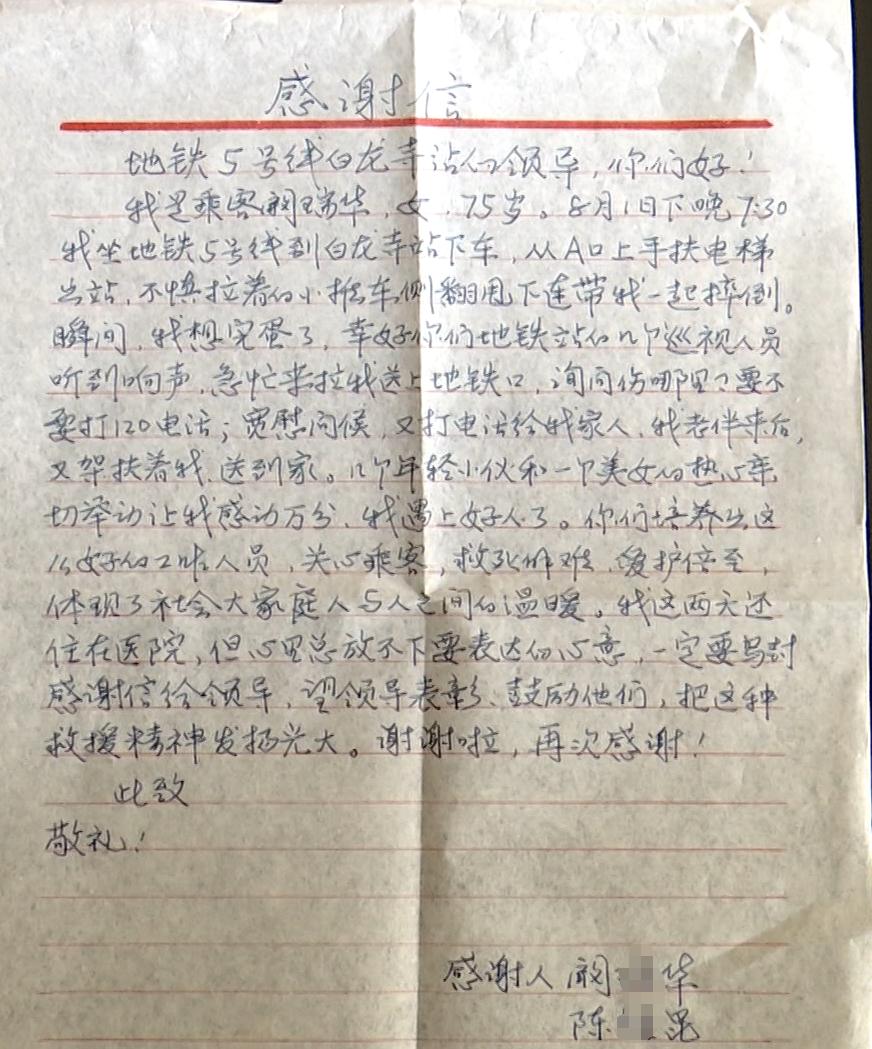 感谢信
地铁5号线白龙寺站的领导，你们好！
我是乘客阚瑞华，女，75岁。8月1日下晚7:30
我坐地铁5号线到白龙寺站下车，从A口上手扶电梯
出站，不慎拉着的小推车侧翻甩下连带我一起摔倒。
瞬间，我想完蛋了，幸好你们地铁站的几个巡视人员
听到响声，急忙来拉我送上地铁口，询问伤哪里？要不
要打120电话；宽慰问候，又打电话给我家人、我老伴来后，
又架扶着我、送到家。几个年轻小伙和一个美女的热心亲
切举动让我感动万分、我遇上好人了。你们培养出这
么好的工作人员，关心乘客，救死解难、爱护倍至，
体现了社会大家庭人与人之间的温暖。我这两天还
住在医院，但心里总放不下要表达的心意，一定要写封
感谢信给领导，望领导表彰、鼓励他们，把这种
救援精神发扬光大。谢谢啦，再次感谢！
此致
敬礼！
感谢人 阚 华
陈 昆